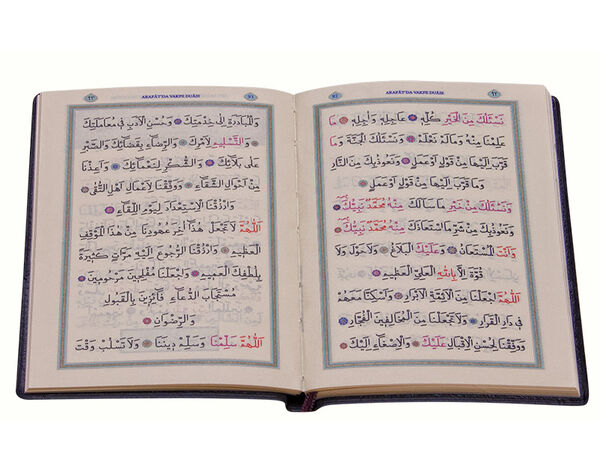 ARAFÂT'DA VAKFE DUÂSI
نَسْئَلُكَ مِنَ الْخَيْرِ كُلِّهِ عَاجِلِهِ وَاٰجِلِهِ مَا
عَلِمْنَا مِنْهُ وَمَا لَمْ نَعْلَمْ وَنَسْئَلُكَ الْجَنَّةَ وَمَا
قَرَّبَ اِلَيْهَا مِنْ قَوْلٍ اَوْ عَمَلٍ وَنَعُوذُ بِكَ مِنَ النَّارِ
وَمَا قَرَّبَ اِلَيْهَا مِنْ قَوْلٍ اَوْ عَمَلٍ
وَنَسْئَلُكَ مِنْ خَيْرِ مَا سَاَلَكَ مِنْهُ مُحَمَّدٌ نَبِيُّكَ
وَنَعُوذُ بِكَ مِنْ شَرِّ مَا اسْتَعَاذَكَ مِنْهُ مُحَمَّدٌ نَبِيُّكَ
وَاَنْتَ الْمُسْتَعَانُ وَعَلَيْكَ الْبَلَاغُ وَلَا حَوْلَ وَلَا
قُوَّةَ اِلَّا بِاللهِ الْعَلِيِّ الْعَظِيمِ
اَللّٰهُمَّ اجْعَلْنَا مِنَ الْاَئِمَّةِ الْاَبْرَارِ وَاَسْكِنَّا مَعَهُمْ
فِي دَارِ الْقَرَارِ وَلَا تَجْعَلْنَا مِنَ الْمُخَالِفِينَ الْفُجَّارِ
وَوَفِّقْنَا لِحُسْنِ الْاِقْبَالِ عَلَيْكَ وَالْاِصْغَاءِ اِلَيْكَ
ARAFÂT'DA VAKFE DUÂSI
وَالْمُبَادَرَةِ اِلٰى خِدْمَتِكَ وَحُسْنِ الْاَدَبِ فِي مُعَامَلَتِكَ
وَالتَّسْلِيمِ لِاَمْرِكَ وَالرِّضَاءِ بِقَضَائِكَ وَالصَّبْرِ
عَلٰى بَلَائِكَ وَالشُّكْرِ لِنَعْمَائِكَ وَاَعِذْنَا
مِنْ اَحْوَالِ الشَّقَاءِ وَوَفِّقْنَا لِاَعْمَالِ اَهْلِ التُّقٰى
وَارْزُقْنَا الْاِسْتِعْدَادَ لِيَوْمِ اللِّقَاءِ
اَللّٰهُمَّ لَا تَجْعَلْ هٰذَا اٰخِرَ عُهُودِنَا مِنْ هٰذَا الْمَوْقِفِ
الْعَظِيمِ وَارْزُقْنَا الرُّجُوعَ اِلَيْهِ مَرَّاتٍ كَثِيرَةً
بِلُطْفِكَ الْعَمِيمِ وَاجْعَلْنَا مُفْلِحِينَ مَرْحُومِينَ
مُسْتَجَابَ الدُّعَاءِ فَائِزِينَ بِالْقَبُولِ
وَالرِّضْوَانِ
اَللّٰهُمَّ سَلِّمْنَا وَسَلِّمْ دِينَنَا وَلَا تَسْلُبْ وَقْتَ